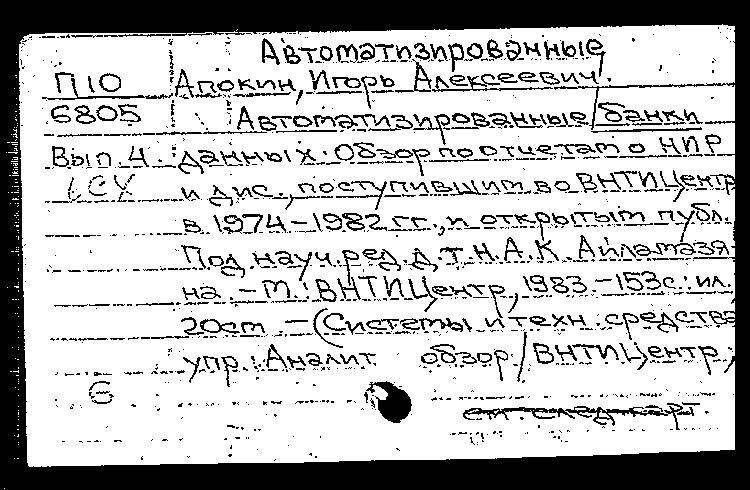 Автоматизированные
П10 Апокин, Игорь Алексеевич.
6805 Автоматизированные банки
Вып. 4 данных: Обзор по отчетам о НИР
и дис., поступившим во ВНТИЦентр
в 1974-1982 гг., и открытым публ.
Под науч. ред. д.т.н. А.К. Айламазя-
на. - М.: ВНТИЦентр, 1983. - 153с.: ил.
20см. - (Системы и техн. средства
упр.: Аналит. обзор / ВНТИЦентр;
6
см. след. карт.